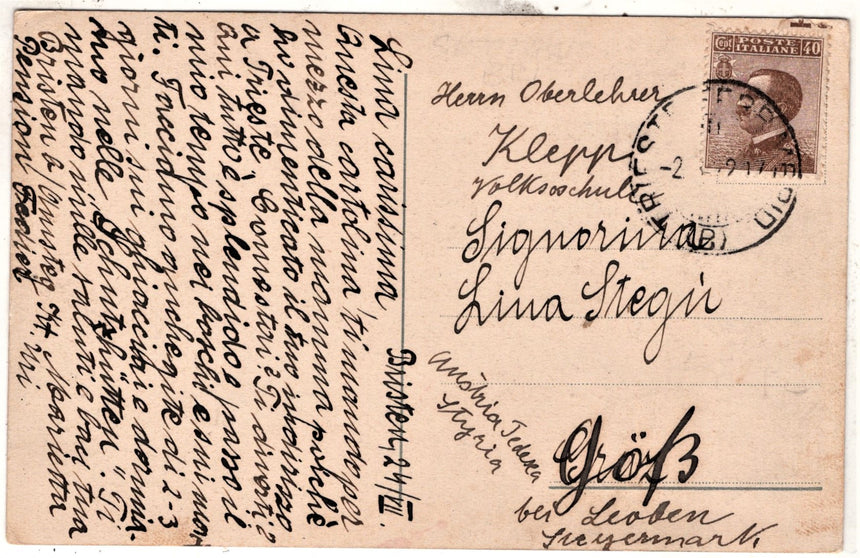 Bristen, 24/VII.
Lina carissima
Questa cartolina ti mando per
mezzo della mamma poichè
ho dimenticato il tuo indirizzo
a Trieste. Como stai? Ti diverti?
Qui tutto è splendido e passo il
mio tempo nei boschi e sui mon-
ti. Facciamo anche gite di 2-3
giorni sui ghiacciai e dormia-
mo nelle "Schutzhütten". Ti
mando mille saluti e baci tua
Marietta
Bristen a/Amsteg Kt. Uri
Pension
POSTE
ITALIANE
Cent. 40
TRIESTE
Herrn Oberlehrer
Klepp
Volksschule
Signorina
Lina Stegù
Austria Tedesca
Styria
Göß
bei Leoben
Steyermark